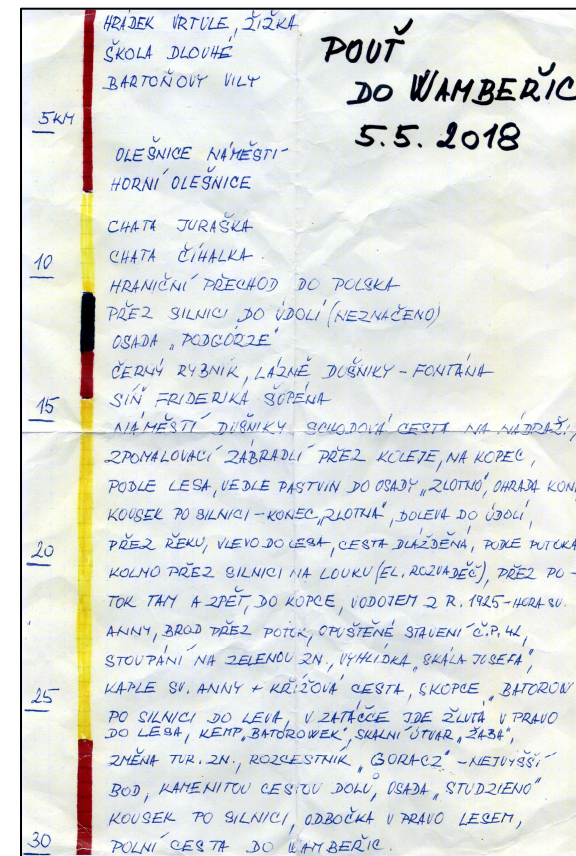 HRÁDEK VRTULE, ŽIŽKA
ŠKOLA DLOUHÉ
BARTOŇOVY VILY
POUŤ
DO WAMBEŘIC
5.5. 2018
5KM
OLEŠNICE NÁMĚSTÍ
HORNÍ OLEŠNICE
CHATA JURAŠKA
CHATA ČÍHALKA
10
HRANIČNÍ PŘECHOD DO POLSKA
PŘEZ SILNICI DO ÚDOLÍ (NEZNAČENO)
OSADA „PODGÓRZE"
ČERNÝ RYBNÍK, LÁZNĚ DUŠNIKY - FONTÁNA
SÍŇ FRIDERIKA ŠOPÉNA
15
NÁMĚSTÍ DUŠNIKY SCHODOVÁ CESTA NA NÁDRAŽÍ,
ZPOMALOVACÍ ZÁBRADLÍ PŘEZ KOLEJE, NA KOPEC,
PODLE LESA, VEDLE PASTVIN DO OSADY „ZLOTNO", OHRADA KONÍ
KOUSEK PO SILNICI - KONEC „ZLOTNA", DOLEVA DO ÚDOLÍ,
20
PŘEZ ŘEKU, VLEVO DO LESA, CESTA DLÁŽDĚNÁ, PODLE POTOKA
KOLMO PŘEZ SILNICI NA LOUKU (EL. ROZVADĚČ), PŘEZ PO-
TOK TAM A ZPĚT, DO KOPCE, VODOJEM Z R. 1925 - HORA SV.
ANNY, BROD PŘEZ POTOK, OPUŠTĚNÉ STAVENÍ Č.P. 42,
STOUPÁNÍ NA ZELENOU ZN., VYHLÍDKA „SKÁLA JOSEFA",
25
KAPLE SV. ANNY + KŘÍŽOVÁ CESTA, SKOPCE „BATOROW
PO SILNICI DO LEVA, V ZATÁČCE JDE ŽLUTÁ V PRAVO
DO LESA, KEMP „BATOROWEK", SKALNÍ ÚTVAR „ŽABA",
ZMĚNA TUR. ZN., ROZCESTNÍK „GORACZ" - NEJVYŠŠÍ
BOD, KAMENITOU CESTOU DOLŮ, OSADA „STUDZIENO"
KOUSEK PO SILNICI, ODBOČKA V PRAVO LESEM,
30
POLNÍ CESTA DO WAMBEŘIC.